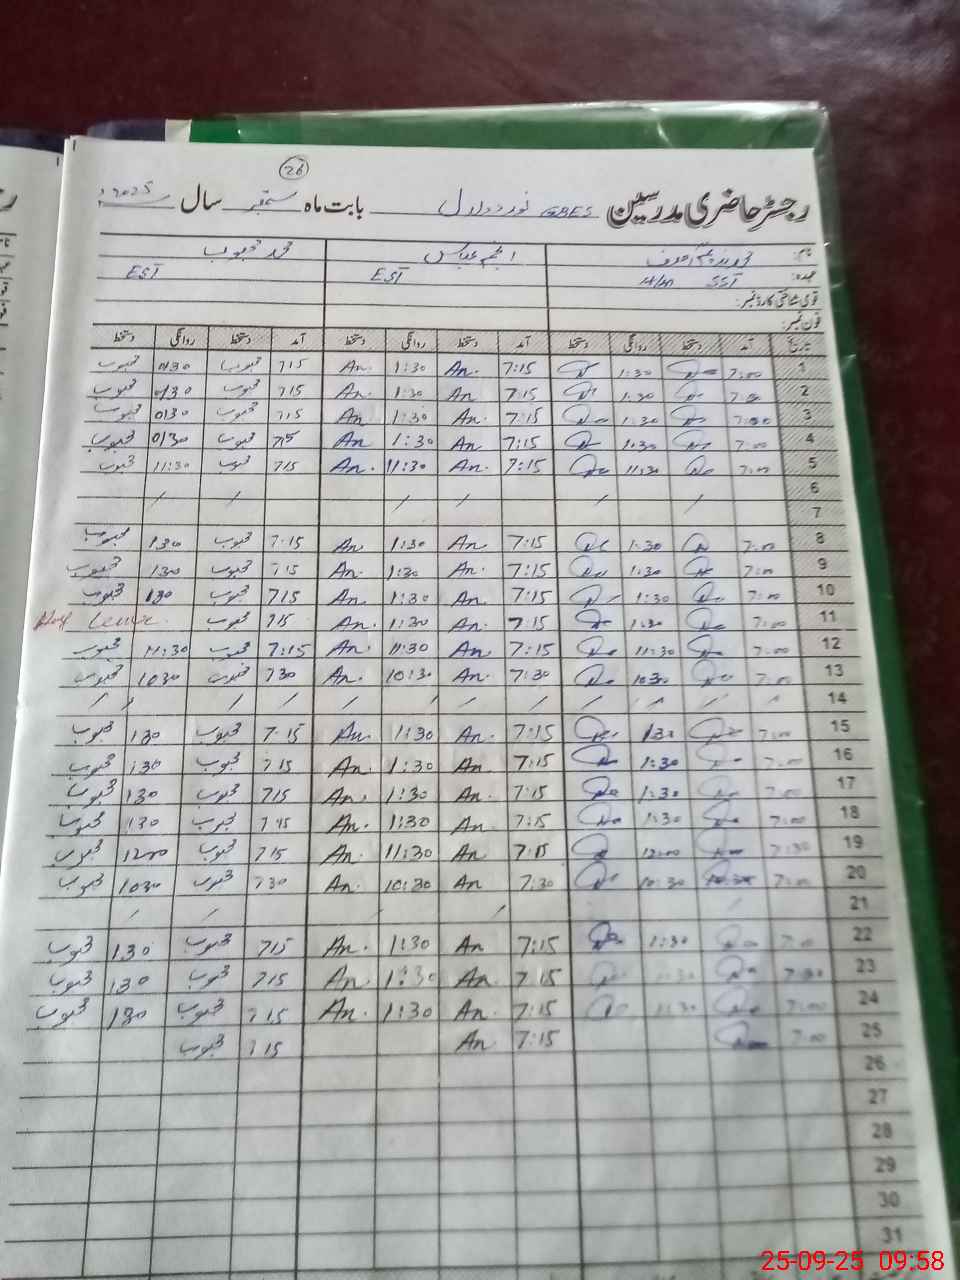 26
رجسٹر حاضری مدرسین GBES بابت ماہ ستمبر سال 2025
نام: انجم عباس محمد محبوب
عہدہ: SST EST EST
قومی شناختی کارڈ نمبر:
فون نمبر:
تاریخ آمد دستخط روانگی دستخط آمد دستخط روانگی دستخط آمد دستخط روانگی دستخط
1 7:00 1:30 7:15 An. 1:30 An. 715 محبوب 0130 محبوب
2 1:30 7:15 An 1:30 An 715 محبوب 0130 محبوب
3 1:30 7:15 An. 1:30 An 715 محبوب 0130 محبوب
4 7:00 1:30 7:15 An. 1:30 An 715 محبوب 0130 محبوب
5 7:00 11:30 7:15 An. 11:30 An. 715 محبوب 11:30 محبوب
6
7
8 7:00 1:30 7:15 An 1:30 An 7:15 محبوب 130 محبوب
9 7:00 1:30 7:15 An. 1:30 An. 715 محبوب 130 محبوب
10 7:00 1:30 7:15 An. 1:30 An. 715 محبوب 130 محبوب
11 7:00 1:30 7:15 An. 1:30 An. 715 محبوب Half Leave
12 7:00 11:30 7:15 An. 11:30 An. 7:15 محبوب 11:30 محبوب
13 7:00 1030 7:30 An. 10:30 An. 730 محبوب 1030 محبوب
14
15 7:00 130 7:15 An. 1:30 An. 7:15 محبوب 130 محبوب
16 7:00 1:30 7:15 An. 1:30 An. 715 محبوب 130 محبوب
17 7:00 1:30 7:15 An. 1:30 An. 715 محبوب 130 محبوب
18 7:00 1:30 7:15 An. 1:30 An. 715 محبوب 130 محبوب
19 12:00 7:15 An. 11:30 An. 715 محبوب 1200 محبوب
20 7:00 10:30 7:30 An 10:30 An. 730 محبوب 1030 محبوب
21
22 7:00 1:30 7:15 An 1:30 An. 715 محبوب 130 محبوب
23 1:30 7:15 An. 1:30 An. 715 محبوب 130 محبوب
24 7:00 1:30 7:15 An. 1:30 An. 715 محبوب 130 محبوب
25 7:00 7:15 An 715 محبوب
26
27
28
29
30
31
25-09-25 09:58